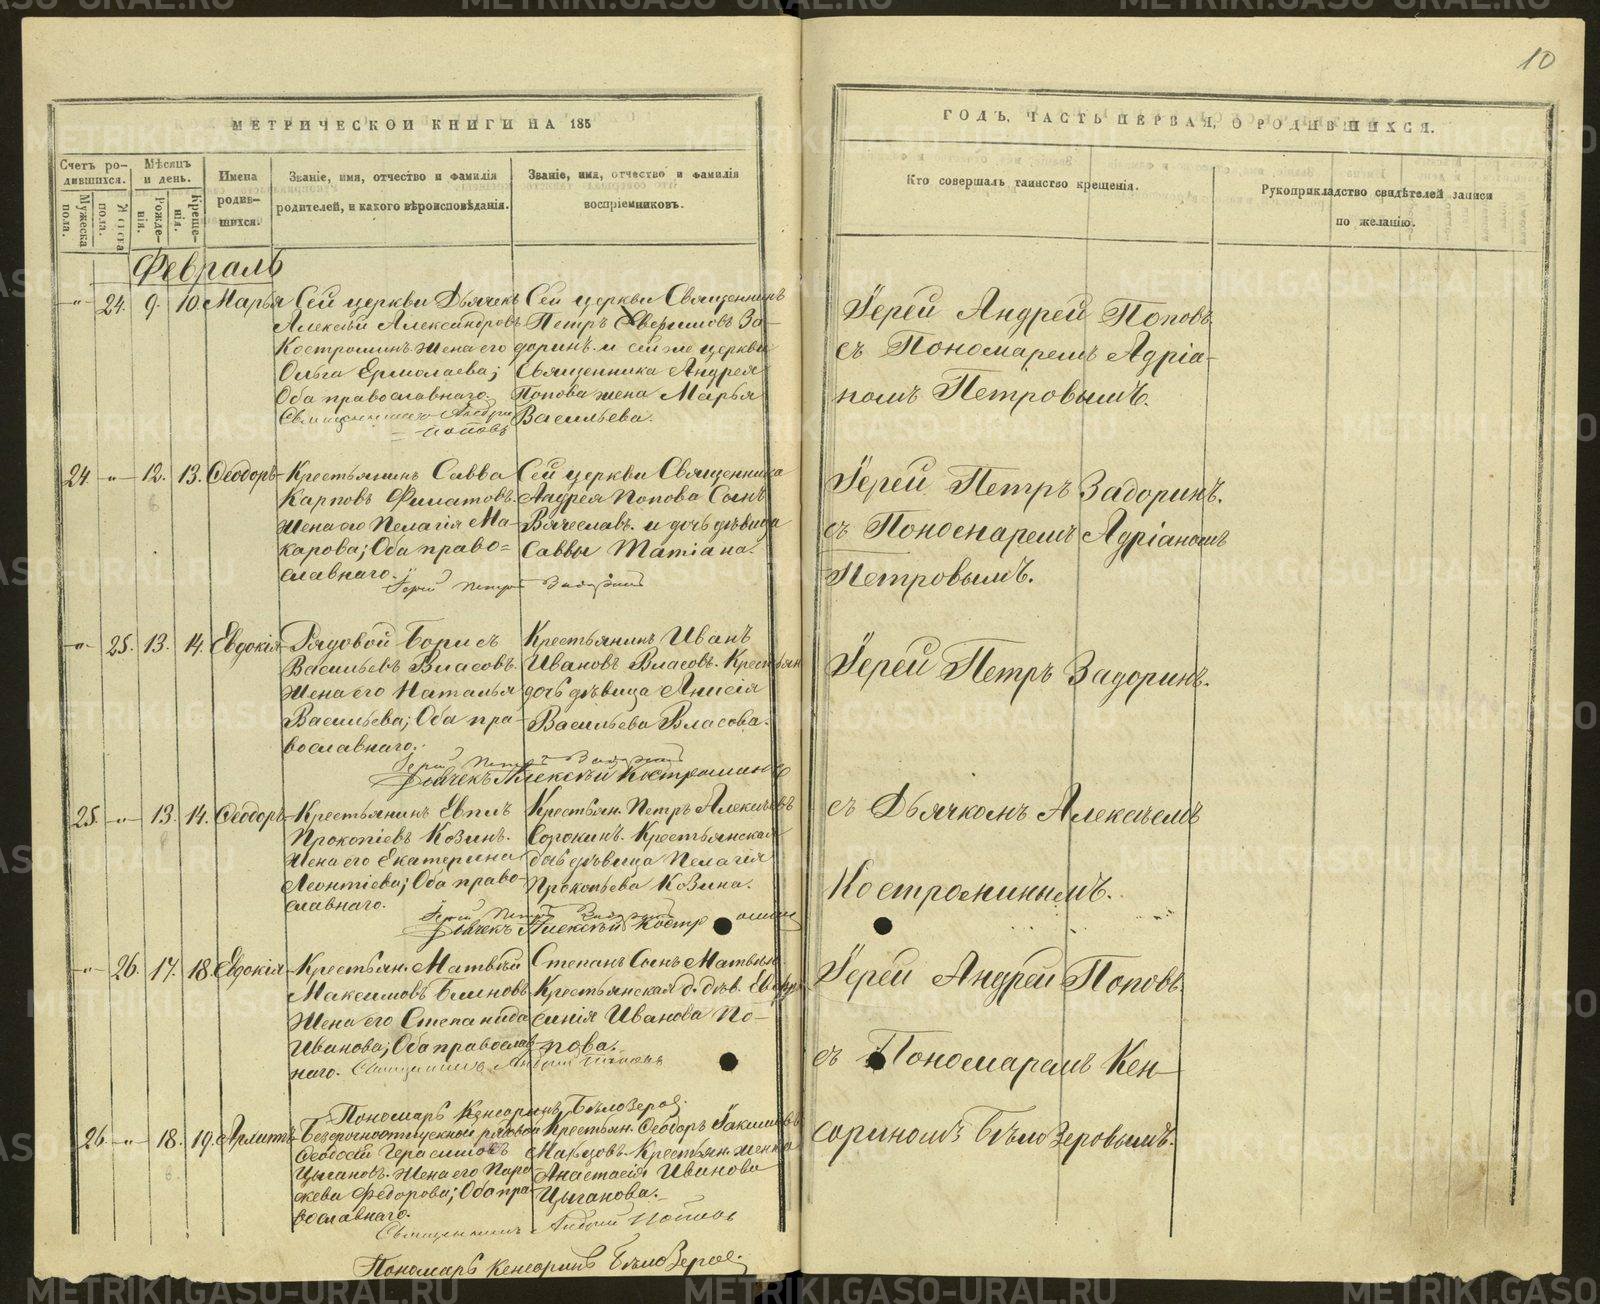 10
МЕТРИЧЕСКОЙ КНИГИ НА 185
ГОДЪ, ЧАСТЬ ПЕРВАЯ, О РОДИВШИХСЯ.
Счетъ ро-
дившихся.
Мужеска
пола.
Женска
пола.
Мѣсяцъ
и день.
Рожде-
нія.
Креще-
нія.
Имена
родив-
шихся.
Званіе, имя, отчество и фамилія
родителей, и какого вѣроисповѣданія.
Званіе, имя, отчество и фамилія
воспріемниковъ.
Кто совершалъ таинство крещенія.
Рукоприкладство свидѣтелей записи
по желанію.
Февраль
-"- 24. 9. 10. Марья
Сей церкви Дьячекъ
Алексѣй Александровъ
Костроминъ жена его
Ольга Ермолаева;
Оба православнаго.
Священникъ Андрей
Поповъ
Сей церкви Священникъ
Петръ За-
доринъ. и сей же церкви
Священника Андрея
Попова жена Марья
Васильева.
Іерей Андрей Поповъ
съ Пономаремъ Адріа-
номъ Петровымъ.
24. -"- 12. 13. Ѳеодоръ
Крестьянинъ Савва
Карповъ Филатовъ.
Жена его Пелагія Ма-
карова; Оба право=
славнаго.
Іерей Петръ Задоринъ
Сей церкви Священника
Андрея Попова Сынъ
Вячеславъ. и дочь дѣвица
Саввы Татіана.
Іерей Петръ Задоринъ.
съ Пономаремъ Адріаномъ
Петровымъ.
-"- 25. 13. 14. Евдокія
Рядовой Борисъ
Васильевъ Власовъ.
Жена его Наталья
Васильева; Оба пра-
вославнаго.
Іерей Петръ Задоринъ
Дьячекъ Алексѣй Костроминъ
Крестьянинъ Иванъ
Ивановъ Власовъ. Крестьян
дочь дѣвица Анисія
Васильева Власова.
Іерей Петръ Задоринъ.
25. -"- 13. 14. Ѳеодоръ
Крестьянинъ Евплъ
Прокопіевъ Козинъ.
Жена его Екатерина
Леонтіева; Оба право-
славнаго.
Іерей Петръ Задоринъ
Дьячекъ Алексѣй Костроминъ
Крестьян. Петръ Алексѣевъ
Сорокинъ. Крестьянская
дочь дѣвица Пелагія
Прокопьева Козина.
съ Дьячкомъ Алексѣемъ
Костроминымъ.
-"- 26. 17. 18. Евдокія
Крестьян. Матвѣй
Максимовъ Блиновъ
Жена его Степанида
Иванова; Оба православ-
наго. Священникъ Андрей Поповъ
Пономарь Кенсоринъ Бѣлозеровъ.
Степанъ Сынъ Матвѣевъ.
Крестьянская д. дѣв. Евфро
синія Иванова По-
пова.
Іерей Андрей Поповъ.
съ Пономаремъ Кен-
26. -"- 18. 19. Архипъ
Безсрочноотпускной рядовой
Ѳеодосій Герасимовъ
Цыгановъ. Жена его Пара
скева Федорова; Оба пра-
вославнаго.
Священникъ Андрей Поповъ
Пономарь Кенсоринъ Бѣлозеровъ.
Крестьян. Ѳеодоръ Іакимовъ
Мальцовъ. Крестьян. женка
Анастасія Иванова
Цыганова.
сориномъ Бѣлозеровымъ.
METRIKI.GASO-URAL.RU